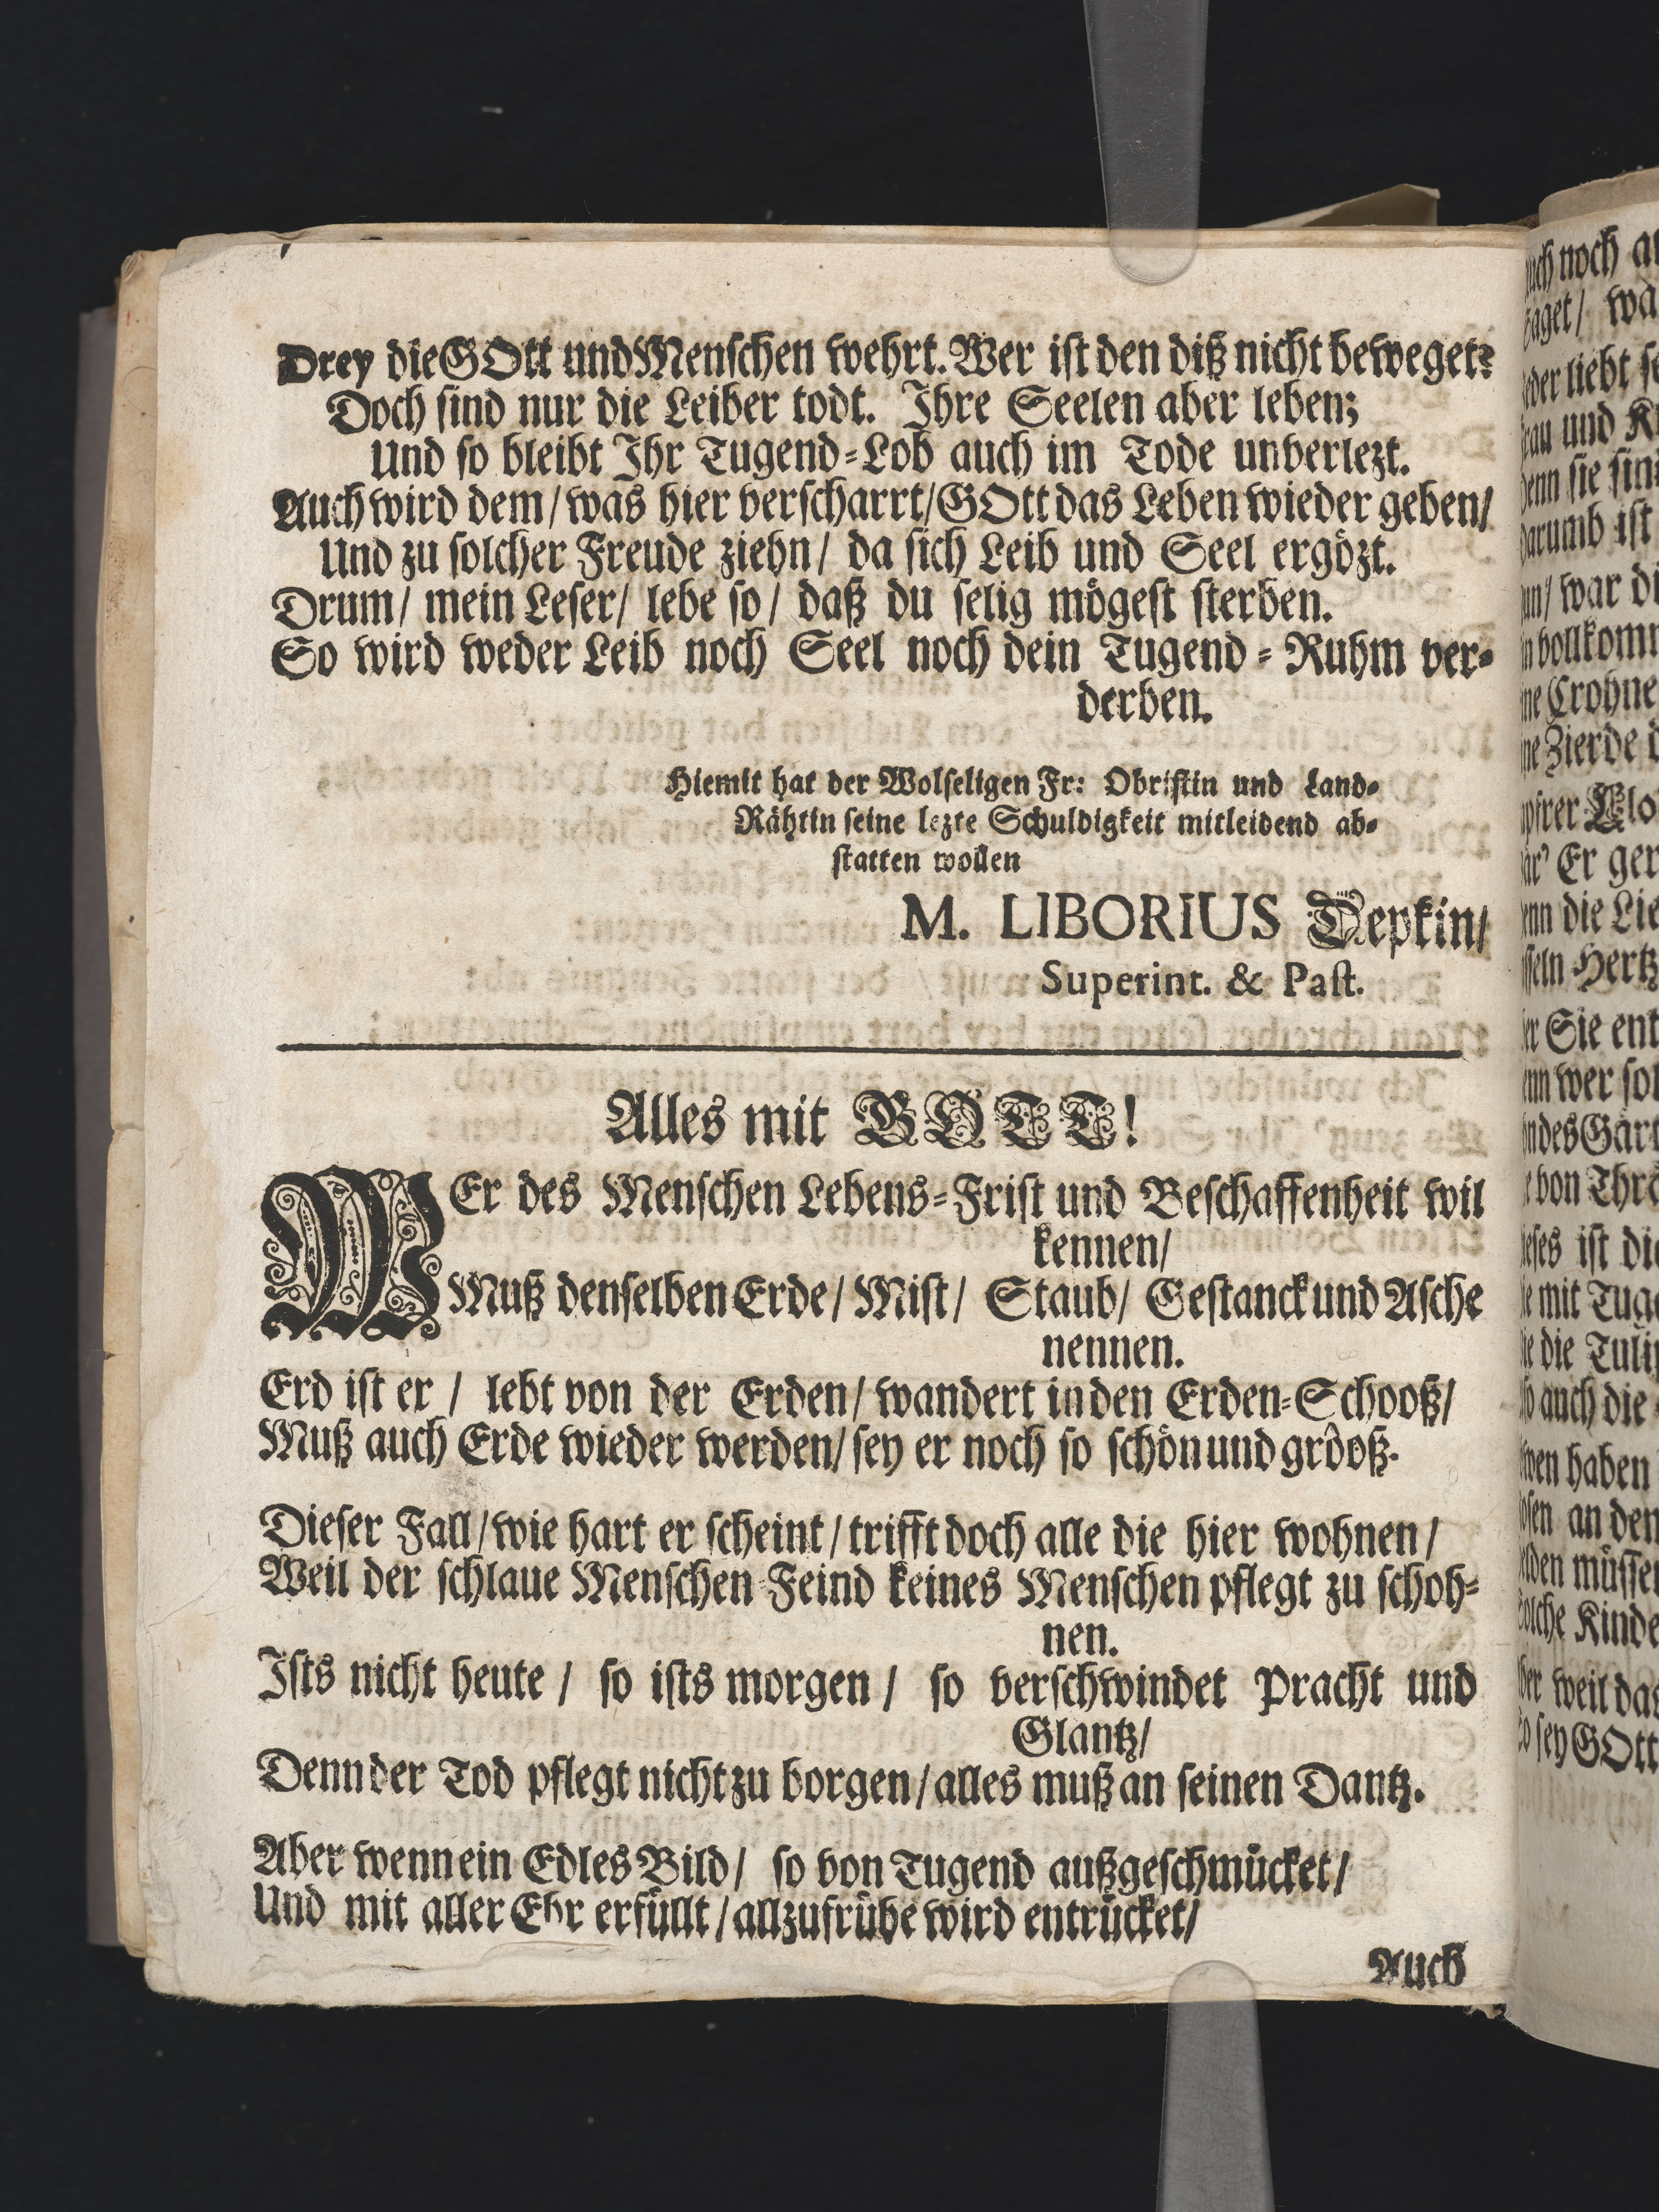 Drey die GOtt und Menschen wehrt. Wer ist den diß nicht beweget?
Doch sind nur die Leiber todt. Ihre Seelen aber leben;
Und so bleibt Ihr Tugend-Lob auch im Tode unverlezt.
Auch wird dem/ was hier verscharrt/ GOtt das Leben wieder geben/
Und zu solcher Freude ziehn/ da sich Leib und Seel ergözt.
Drum/ mein Leser/ lebe so/ daß du selig mögest sterben.
So wird weder Leib noch Seel noch dein Tugend-Ruhm ver-
derben.
Hiemit hat der Wolseligen Fr: Obristin und Land-
Rähtin seine lezte Schuldigkeit mitleidend ab-
statten wollen
M. LIBORIUS Depkin/
Superint. & Past.
Alles mit GOTT!
WEr des Menschen Lebens-Frist und Beschaffenheit wil
kennen/
Muß denselben Erde/ Mist/ Staub/ Gestanck und Asche
nennen.
Erd ist er/ lebt von der Erden/ wandert in den Erden-Schooß/
Muß auch Erde wieder werden/ sey er noch so schön und grooß.
Dieser Fall/ wie hart er scheint/ trifft doch alle die hier wohnen/
Weil der schlaue Menschen-Feind keines Menschen pflegt zu schoh-
nen.
Ists nicht heute/ so ists morgen/ so verschwindet Pracht und
Glantz/
Denn der Tod pflegt nicht zu borgen/ alles muß an seinen Dantz.
Aber wenn ein Edles Bild/ so von Tugend außgeschmücket/
Und mit aller Ehr erfüllt/ allzufrühe wird entrücket/
Auch